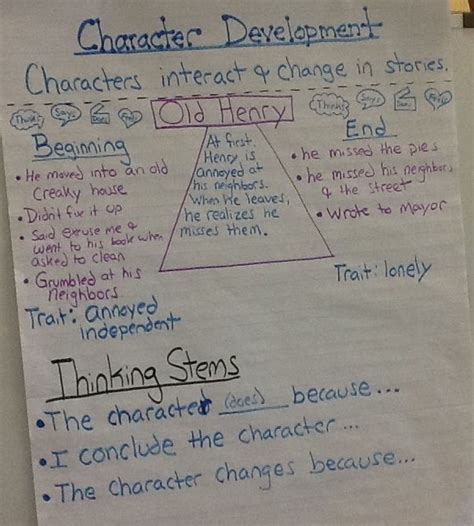 Character Development
Characters interact & change in stories.
Thinks Says Does Feels
Old Henry
Thinks Says Does Feels
Beginning
• He moved into an old
creaky house
• Didn't fix it up
• Said excuse me &
went to his book when
asked to clean
• Grumbled at his
neighbors
Trait: Annoyed
independent
At first,
Henry is
annoyed at
his neighbors.
When he leaves,
he realizes he
misses them.
End
• he missed the pies
• he missed his neighbors
& the street
• Wrote to Mayor
Trait: lonely
Thinking Stems
• The character (does) because...
• I conclude the character...
• The character changes because...